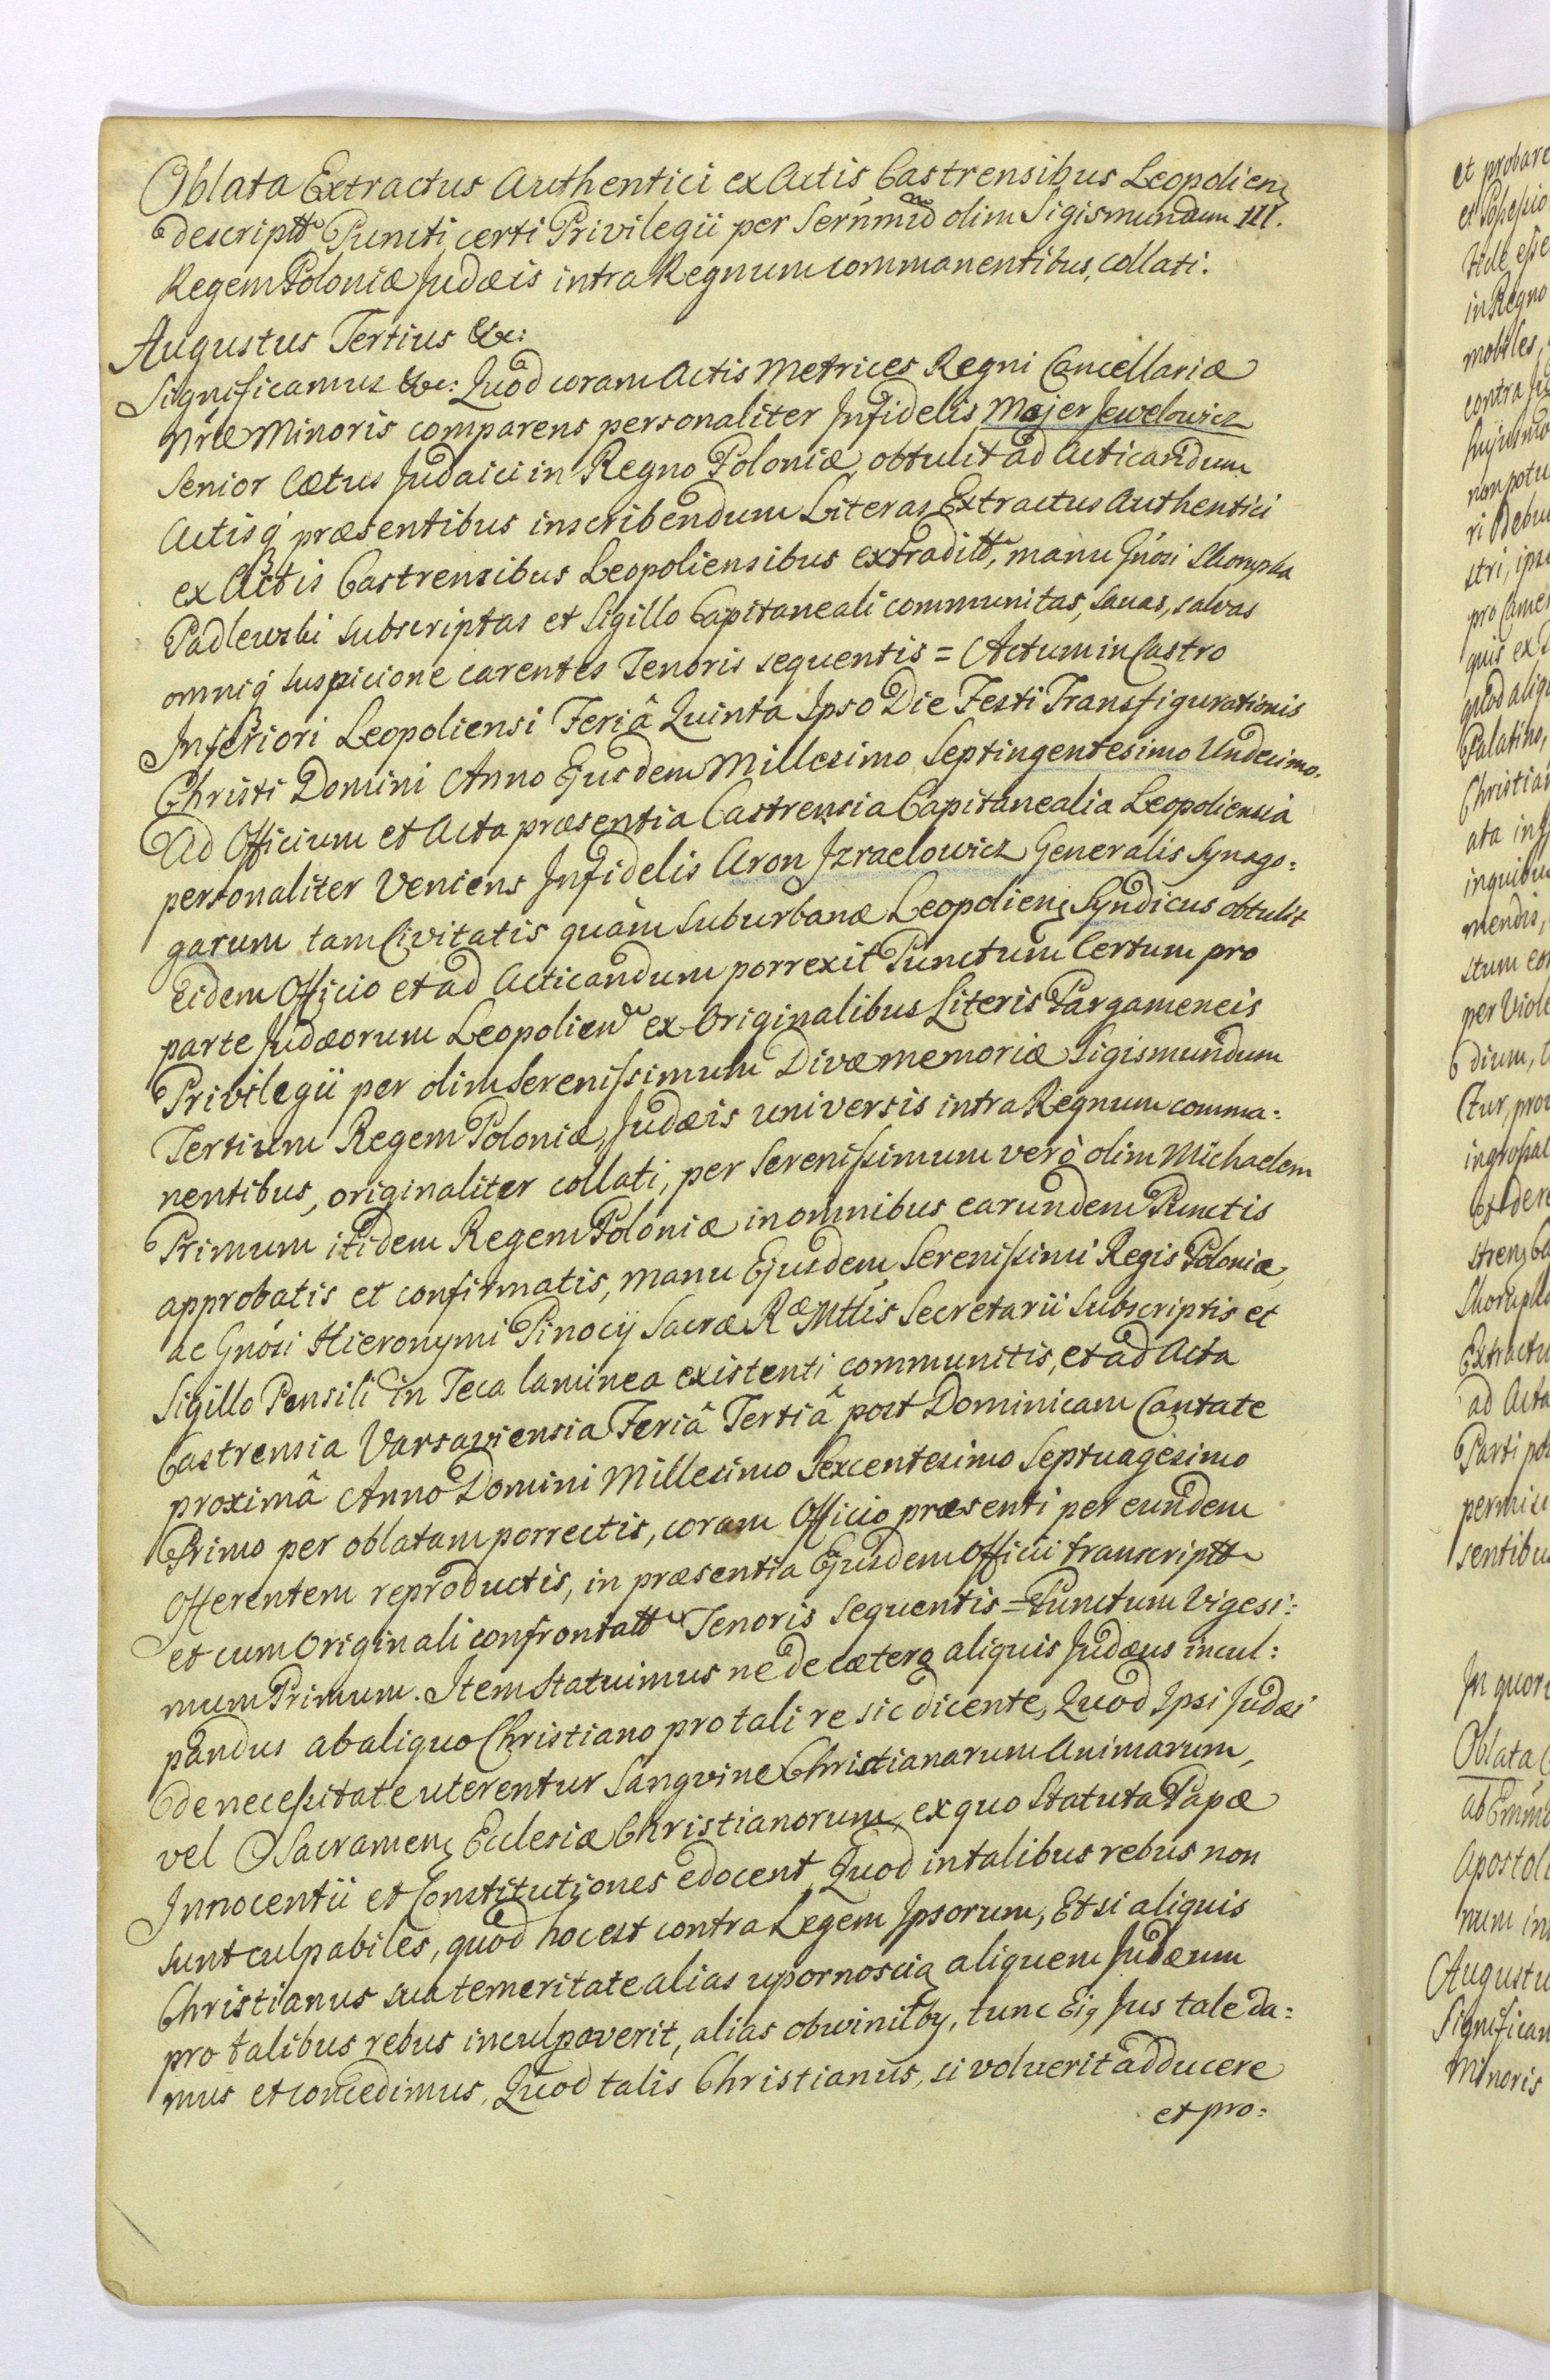 Oblata Extractus Authentici ex Actis Castrensibus Leopolien
descriptt Puncti certi Privilegii per Serñmũ olim Sigismundum III.
Regem Poloniæ Judæis intra Regnum commanentibus, collati.
Augustus Tertius &c:
Significamus &c: Quod coram Actis Metrices Regni Cancellariæ
Nræ Minoris comparens personaliter Infidelis Majer Jewelowicz
Senior Cœtus Judaici in Regno Poloniæ, obtulit ad Acticandum
Actisq́ præsentibus inscribendum Literas Extractus Authentici
ex Actis Castrensibus Leopoliensibus extraditt, manu Gnósi Skarupka
Padlewski subscriptas et Sigillo Capitaneali communitas, sanas, salvas
omniq́ suspicione carentes Tenoris sequentis = Actum in Castro
Inferiori Leopoliensi Feriâ Quinta Ipso Die Festi Transfigurationis
Christi Domini Anno Ejusdem Millesimo Septingentesimo Undecimo.
Ad Officium et Acta præsentia Castrensia Capitanealia Leopoliensia
personaliter Veniens Infidelis Aron Jzraelowicz Generalis Synago:
garum tam Civitatis quàm Suburbanæ Leopolien Syndicus obtulit
Eidem Officio et ad Acticandum porrexit Punctum Certum pro
parte Judæorum Leopolien ex Originalibus Literis Pargameneis
Privilegii per olim Serenissimum Divæ memoriæ Sigismundum
Tertium Regem Poloniæ, Judæis universis intra Regnum comma:
nentibus, originaliter collati, per Serenissimum verò olim Michaelem
Primum itidem Regem Poloniæ in omnibus earundem Punctis
approbatis et confirmatis, manu Ejusdem Serenissimi Regis Poloniæ,
ac Gnósi Hieronymi Pinocij Sacræ Ræ Mttis Secretarii Subscriptis et
Sigillo Pensili in Teca laminea existenti communitis, et ad Acta
Castrensia Varsaviensia Feriâ Tertiâ post Dominicam Cantate
proximâ Anno Domini Millesimo Sexcentesimo Septuagesimo
Primo per oblatam porrectis, coram Officio præsenti per eundem
Offerentem reproductis, in præsentia Ejusdem Officii transcriptt
et cum Originali confrontatt Tenoris Sequentis = Punctum Vigesi:
mum Primum. Item Statuimus ne de cætero aliquis Judæus incul:
pandus ab aliquo Christiano pro tali re sic dicente, Quod Ipsi Judæi
de necessitate uterentur Sangvine Christianarum Animarum,
vel Sacramen Ecclesiæ Christianorum, ex quo Statuta Papæ
Innocentii et Constitutiones edocent, Quod in talibus rebus non
sunt culpabiles, quod hoc est contra Legem Ipsorum, Et si aliquis
Christianus sua temeritate alias upornoscią aliquem Judæum
pro talibus rebus inculpaverit, alias obwinił by, tunc Eis Jus tale da:
mus et concedimus, Quod talis Christianus, si voluerit adducere
et pro:
et probare
in Regno
mobiles,
contra
non potu
stri, ipse
pro Came
quis ex
quod aliq
Palatino,
Christia
ata in
inquibus
mendis,
stum
per Viole
dium,
ctur, pro
Extractu
ad Acta
Parti
permis
sentibus
In quor
Oblata
Apostol
num in
Augustu
Significam
Minoris